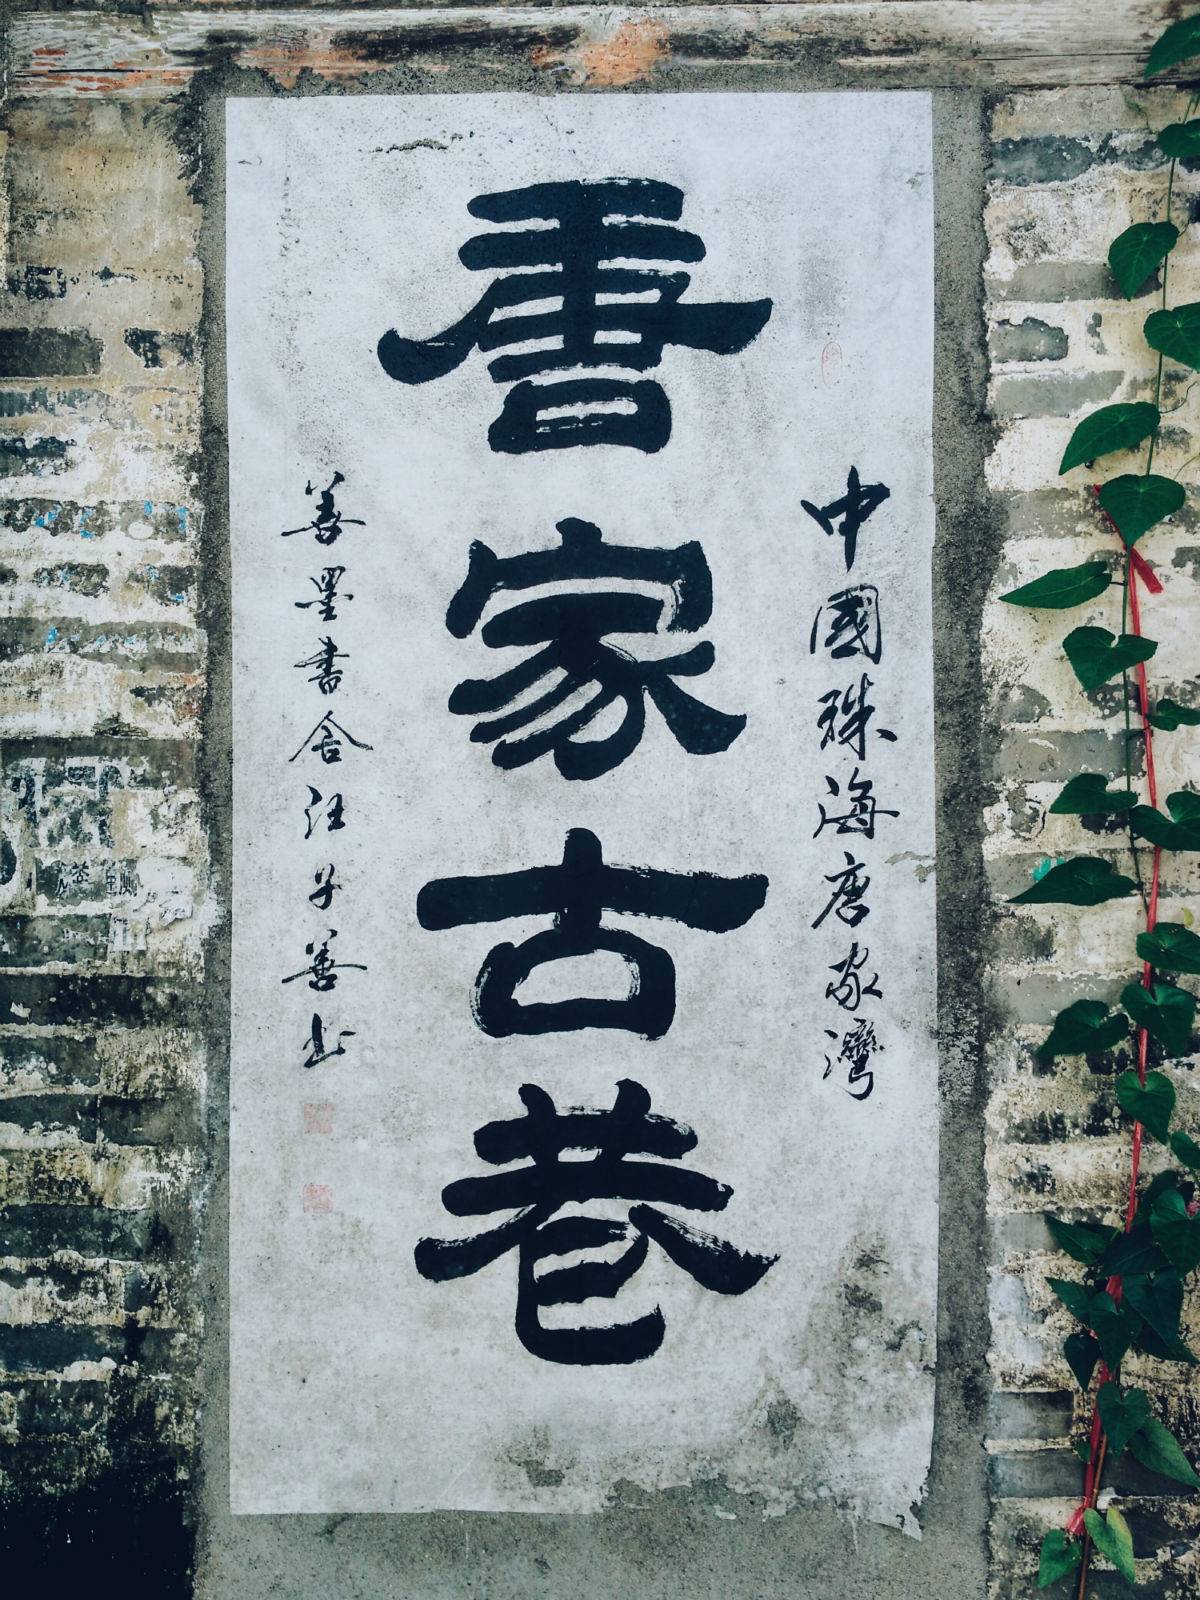 中國珠海唐家灣
書家古巷
善墨書舍汪子善书